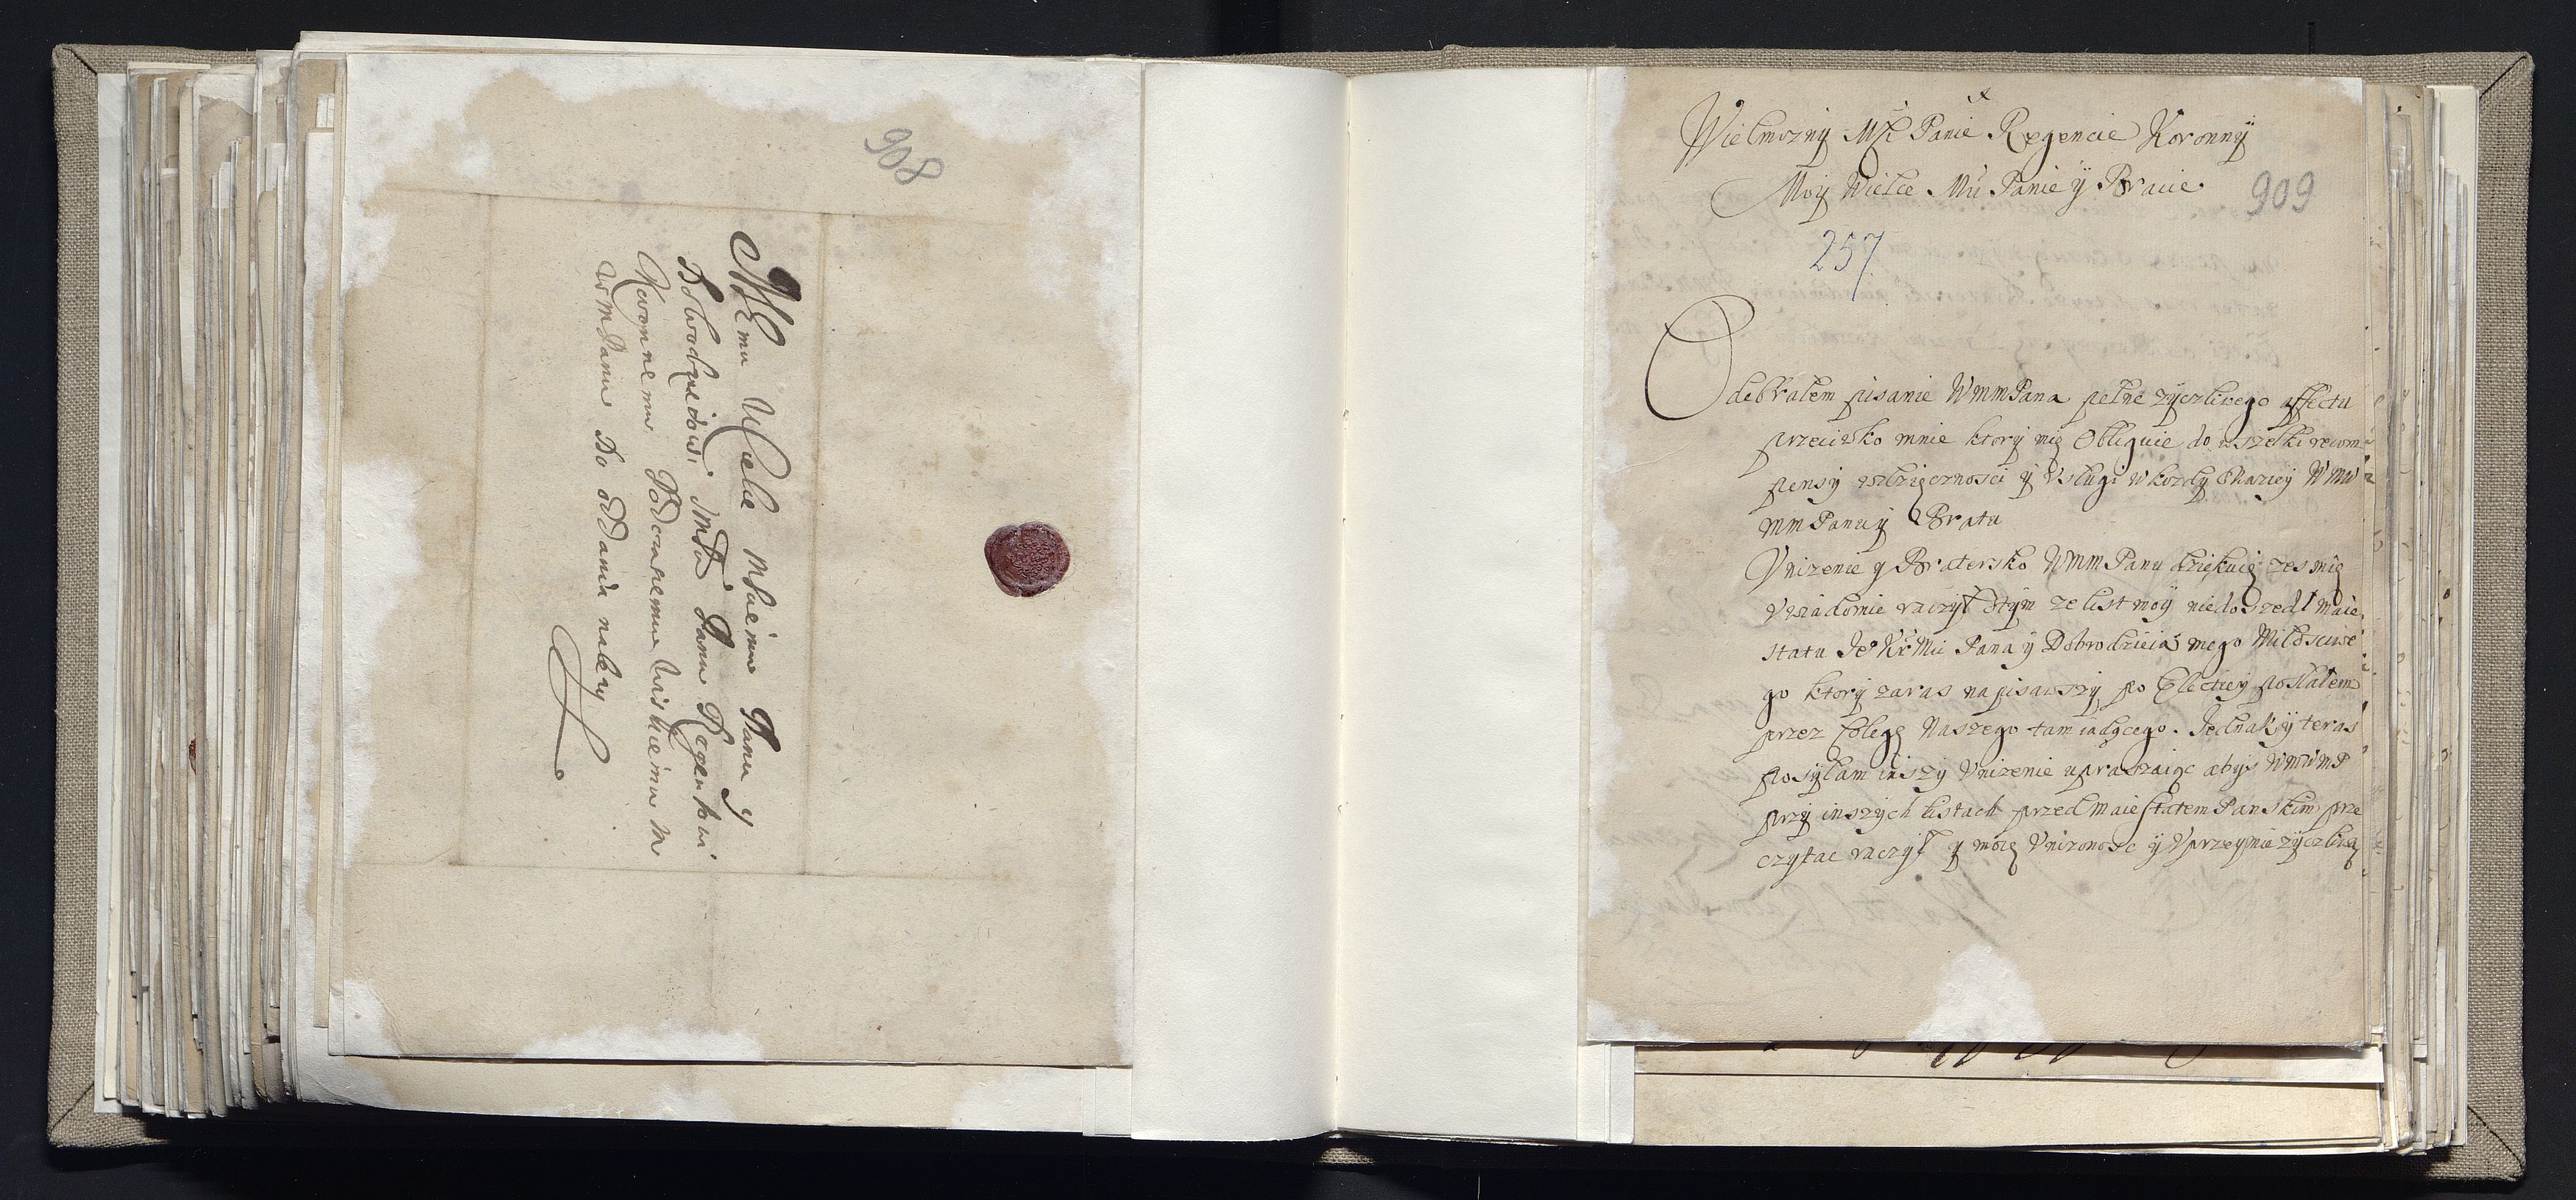 908
Memu Wielce Mściwemu Panu y
Dobrodzieiowi Jmści Panu Regentowi
Koronnemu Podczaszemu Wiskiemu M
WmPanu Do oddania należy
Wielmozny Mći Panie Regencie Koronny
Moy Wielce Mći Panie ÿ Bracie
909
257
Odebrałem pisanie WmmPana pełne zyczliwego affectu
przeciwko mnie ktory mię Obliguie do wszelki recom
pensy wdzięcznosci ÿ Vsługi w kozdy Okaziey WMM
mm Panu ÿ Bratu
Vnizenie y Bratersko WmmPanu dziękuię zes mię
Vwiadomic raczył otym ze list moÿ niedoszedl maie
statu Je° Kr Mci Pana ÿ Dobrodzieia mego Miłosciwe
go ktory zaras napisawszy po Electiey posłałem
przez Colegę Naszego tam iadącego. Jednak ÿ teras
posyłam inszy Vnizenie upraszaiąc abys WMWMP
przy inszych listach przed maiestatem Panskim prze
czytac raczył y moię Vnizonosc ÿ Vprzeymie zyczliwą